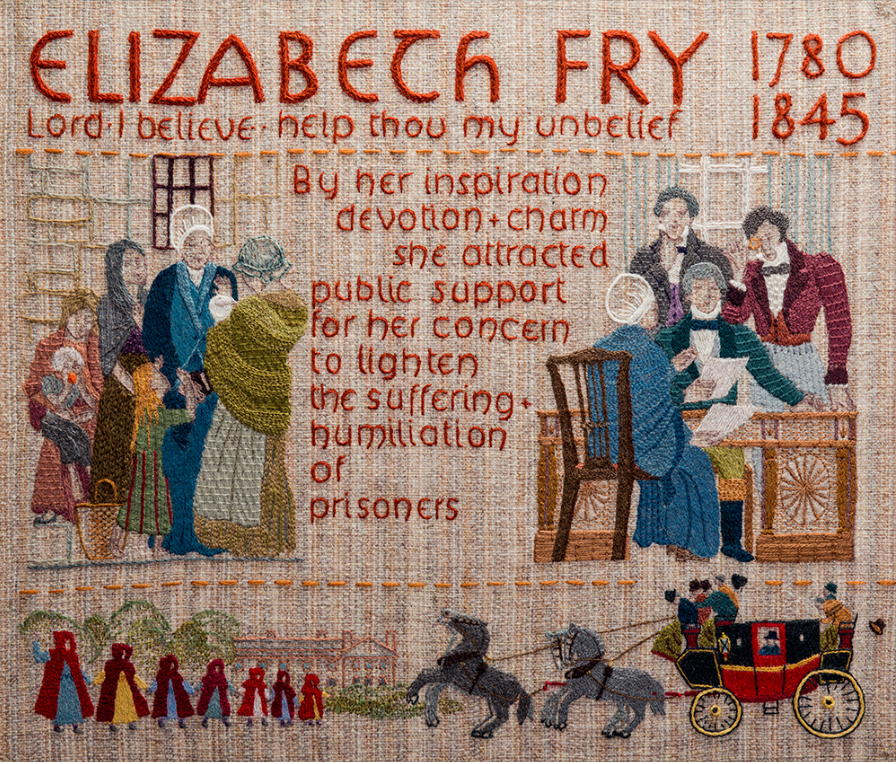 ELIZABETH FRY 1780
1845
Lord · I believe · help thou my unbelief
By her inspiration
devotion + charm
she attracted
public support
for her concern
to lighten
the suffering +
humiliation
of
prisoners